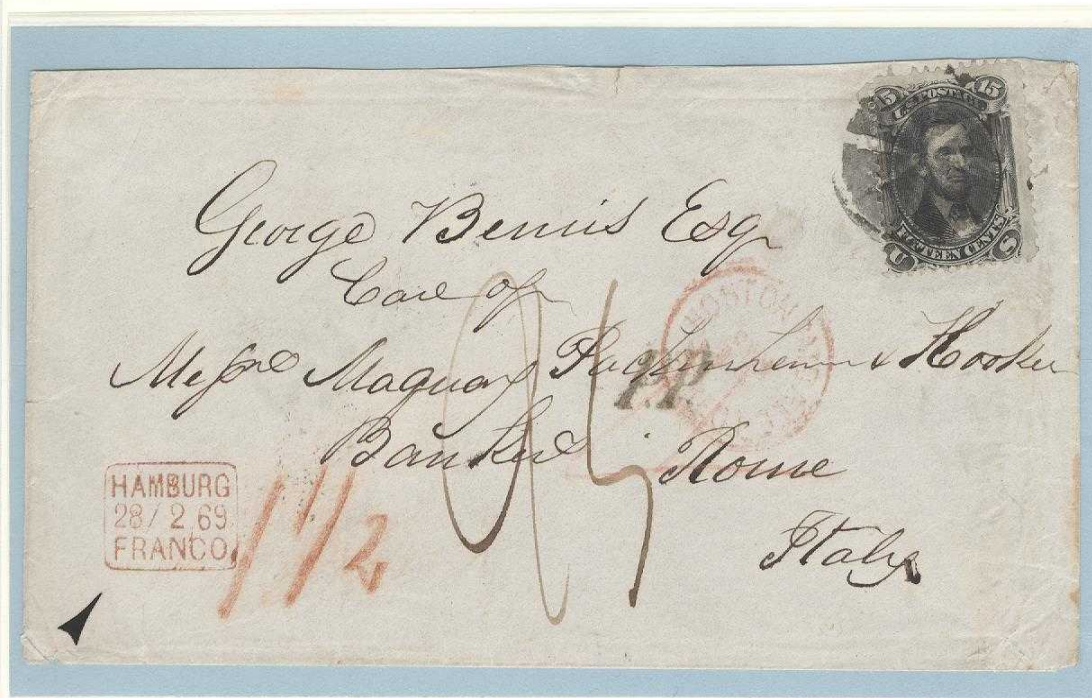 15 U.S. POSTAGE 15
FIFTEEN CENTS
U S
George Bemis Esq
Care of
Messrs Maquay Pakenham & Hooker
Bankers Rome
Italy
BOSTON
P.P.
HAMBURG
28/2 69
FRANCO
1 1/2